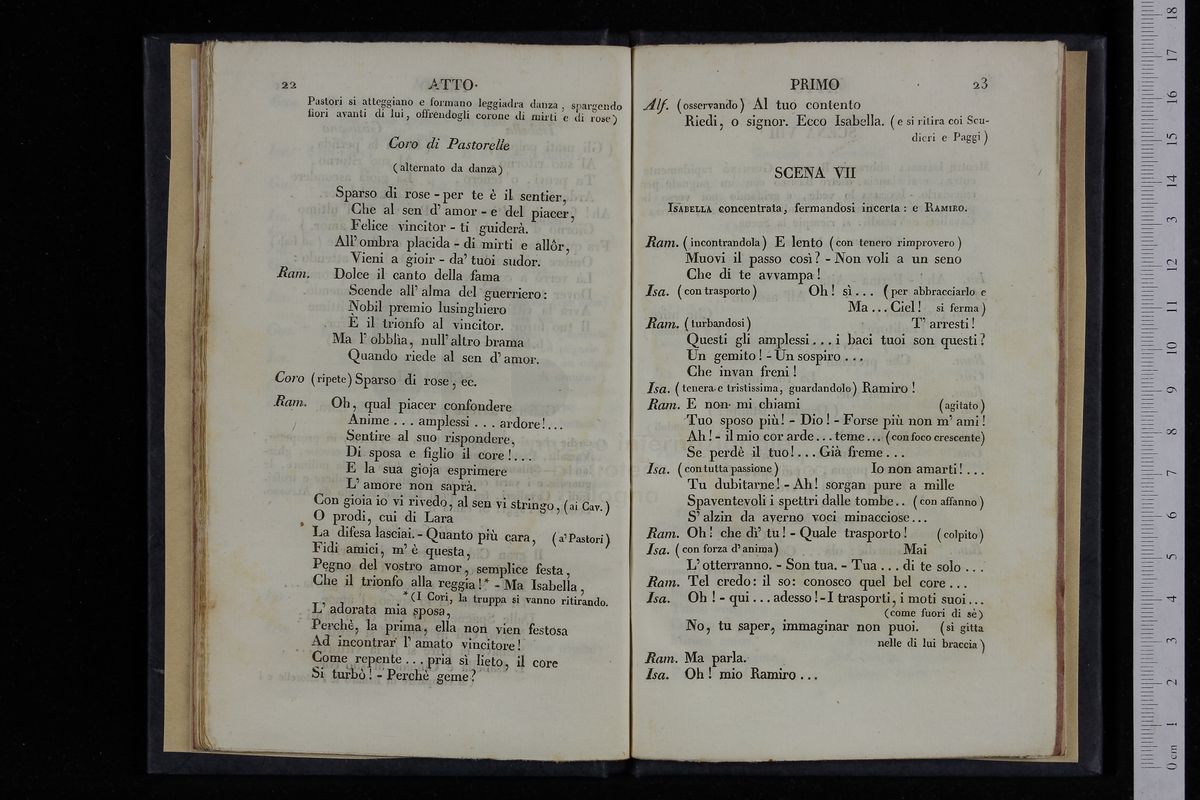 22 ATTO
Pastori si atteggiano e formano leggiadra danza, spargendo
fiori avanti di lui, offrendogli corone di mirti e di rose)
Coro di Pastorelle
(alternato da danza)
Sparso di rose - per te è il sentier,
Che al sen d'amor - e del piacer,
Felice vincitor - ti guiderà.
All'ombra placida - di mirti e allôr,
Vieni a gioir - da' tuoi sudor.
Ram. Dolce il canto della fama
Scende all'alma del guerriero:
Nobil premio lusinghiero
È il trionfo al vincitor.
Ma l'obblia, null'altro brama
Quando riede al sen d'amor.
Coro (ripete) Sparso di rose, ec.
Ram. Oh, qual piacer confondere
Anime... amplessi... ardore!...
Sentire al suo rispondere,
Di sposa e figlio il core!...
E la sua gioja esprimere
L'amore non saprà.
Con gioia io vi rivedo, al sen vi stringo, (ai Cav.)
O prodi, cui di Lara
La difesa lasciai. - Quanto più cara, (a'Pastori)
Fidi amici, m'è questa,
Pegno del vostro amor, semplice festa,
Che il trionfo alla reggia!* - Ma Isabella,
*(I Cori, la truppa si vanno ritirando.
L'adorata mia sposa,
Perchè, la prima, ella non vien festosa
Ad incontrar l'amato vincitore!
Come repente... pria sì lieto, il core
Si turbò! - Perchè geme?
PRIMO 23
Alf. (osservando) Al tuo contento
Riedi, o signor. Ecco Isabella. (e si ritira coi Scu-
dieri e Paggi)
SCENA VII
ISABELLA concentrata, fermandosi incerta: e RAMIRO.
Ram. (incontrandola) E lento (con tenero rimprovero)
Muovi il passo così? - Non voli a un seno
Che di te avvampa!
Isa. (con trasporto) Oh! sì... (per abbracciarlo e
Ma... Ciel! si ferma)
Ram. (turbandosi) T'arresti!
Questi gli amplessi... i baci tuoi son questi?
Un gemito! - Un sospiro...
Che invan freni!
Isa. (tenera e tristissima, guardandolo) Ramiro!
Ram. E non mi chiami (agitato)
Tuo sposo più! - Dio! - Forse più non m'ami!
Ah! - il mio cor arde... teme... (con foco crescente)
Se perdè il tuo!... Già freme...
Isa. (con tutta passione) Io non amarti!...
Tu dubitarne! - Ah! sorgan pure a mille
Spaventevoli i spettri dalle tombe.. (con affanno)
S'alzin da averno voci minacciose...
Ram. Oh! che di' tu! - Quale trasporto! (colpito)
Isa. (con forza d'anima) Mai
L'otterranno. - Son tua. - Tua... di te solo...
Ram. Tel credo: il so: conosco quel bel core...
Isa. Oh! - qui... adesso! - I trasporti, i moti suoi...
(come fuori di sè)
No, tu saper, immaginar non puoi. (si gitta
nelle di lui braccia)
Ram. Ma parla.
Isa. Oh! mio Ramiro...
0 cm 1 2 3 4 5 6 7 8 9 10 11 12 13 14 15 16 17 18